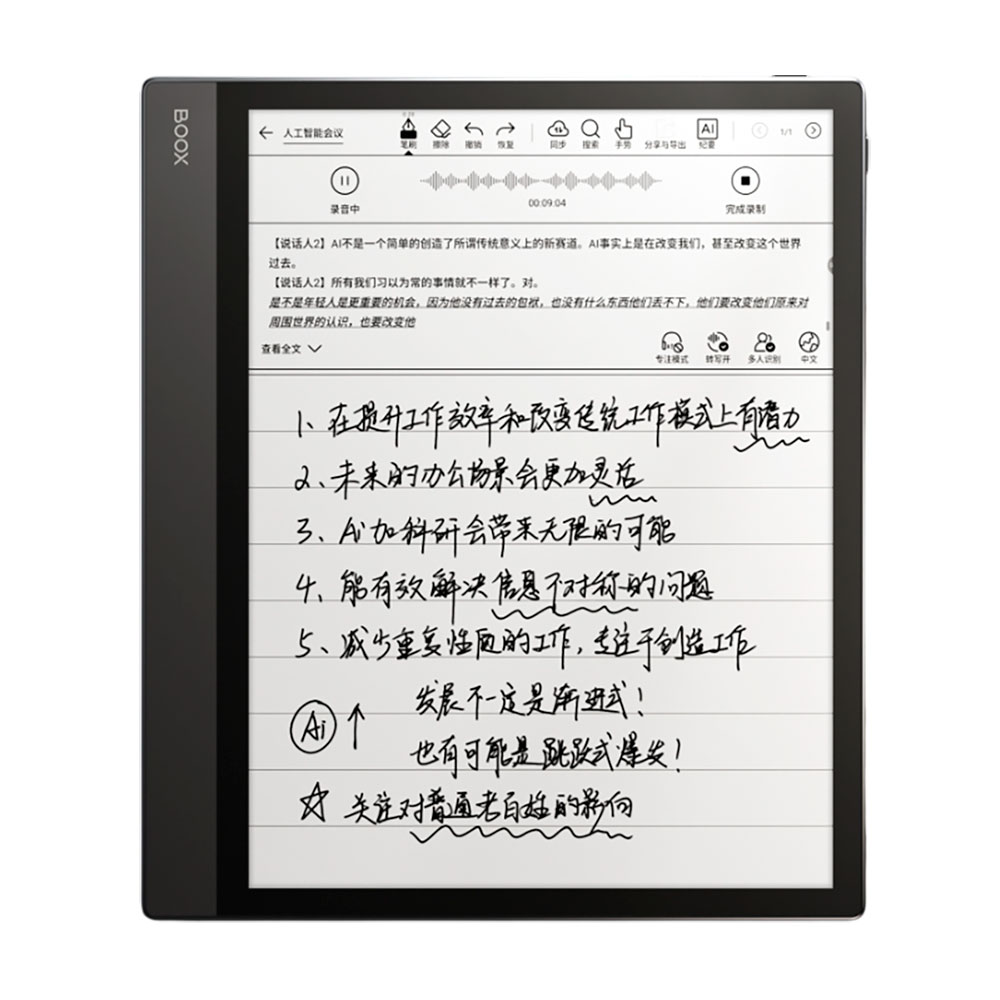 BOOX
人工智能会议
笔刷 擦除 撤销 恢复 同步 搜索 手势 分享与导出 AI 纪要 1/1
录音中 00:09:04 完成录制
【说话人2】AI不是一个简单的创造了所谓传统意义上的新赛道。AI事实上是在改变我们，甚至改变这个世界
过去。
【说话人2】所有我们习以为常的事情就不一样了。对。
是不是年轻人是更重要的机会，因为他没有过去的包袱，也没有什么东西他们丢不下，他们要改变他们原来对
周围世界的认识，也要改变他
查看全文 专注模式 转写开 多人识别 中文
1、在提升工作效率和改变传统工作模式上有潜力
2、未来的办公场景会更加灵活
3、Ai加科研会带来无限的可能
4、能有效解决信息不对称的问题
5、减少重复性质的工作，专注于创造工作
发展不一定是渐进式！
Ai
也有可能是跳跃式爆发！
关注对普通老百姓的影响